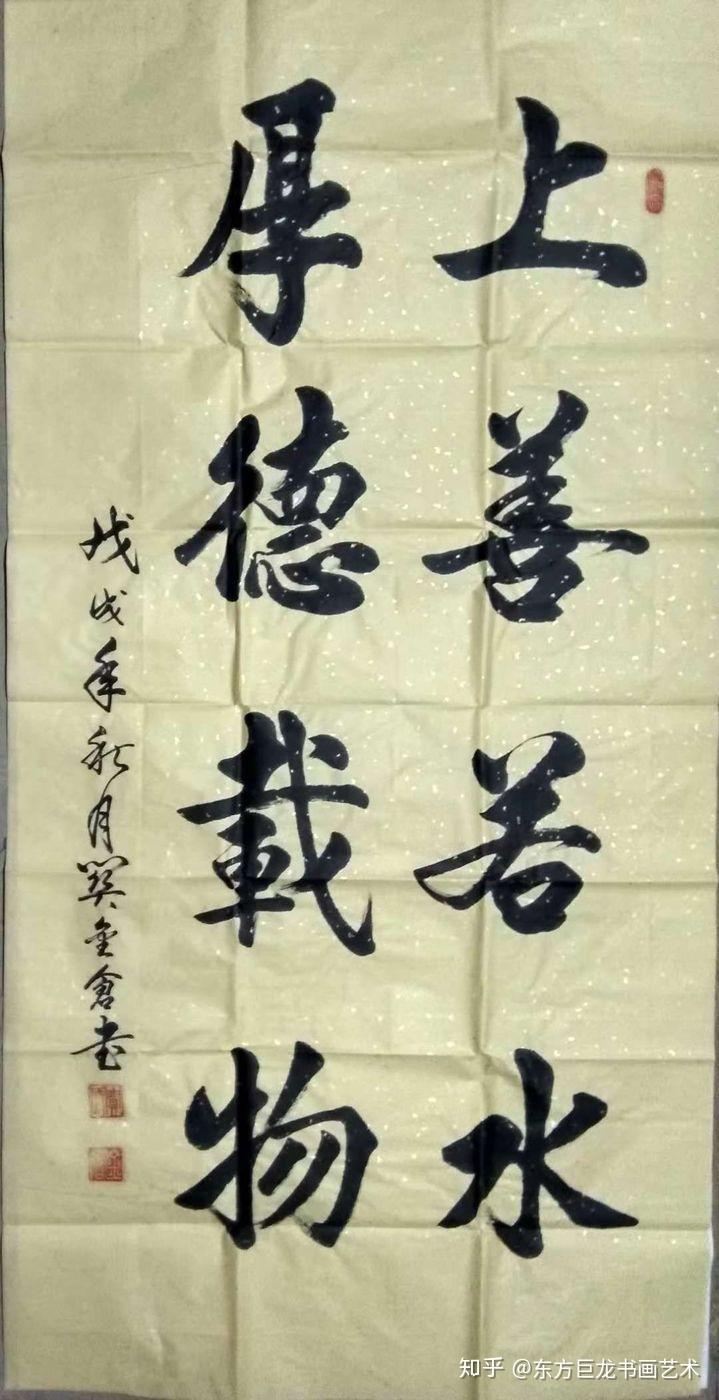 上善若水
厚德載物
戊戌年秋月 金倉书
知乎 @东方巨龙书画艺术